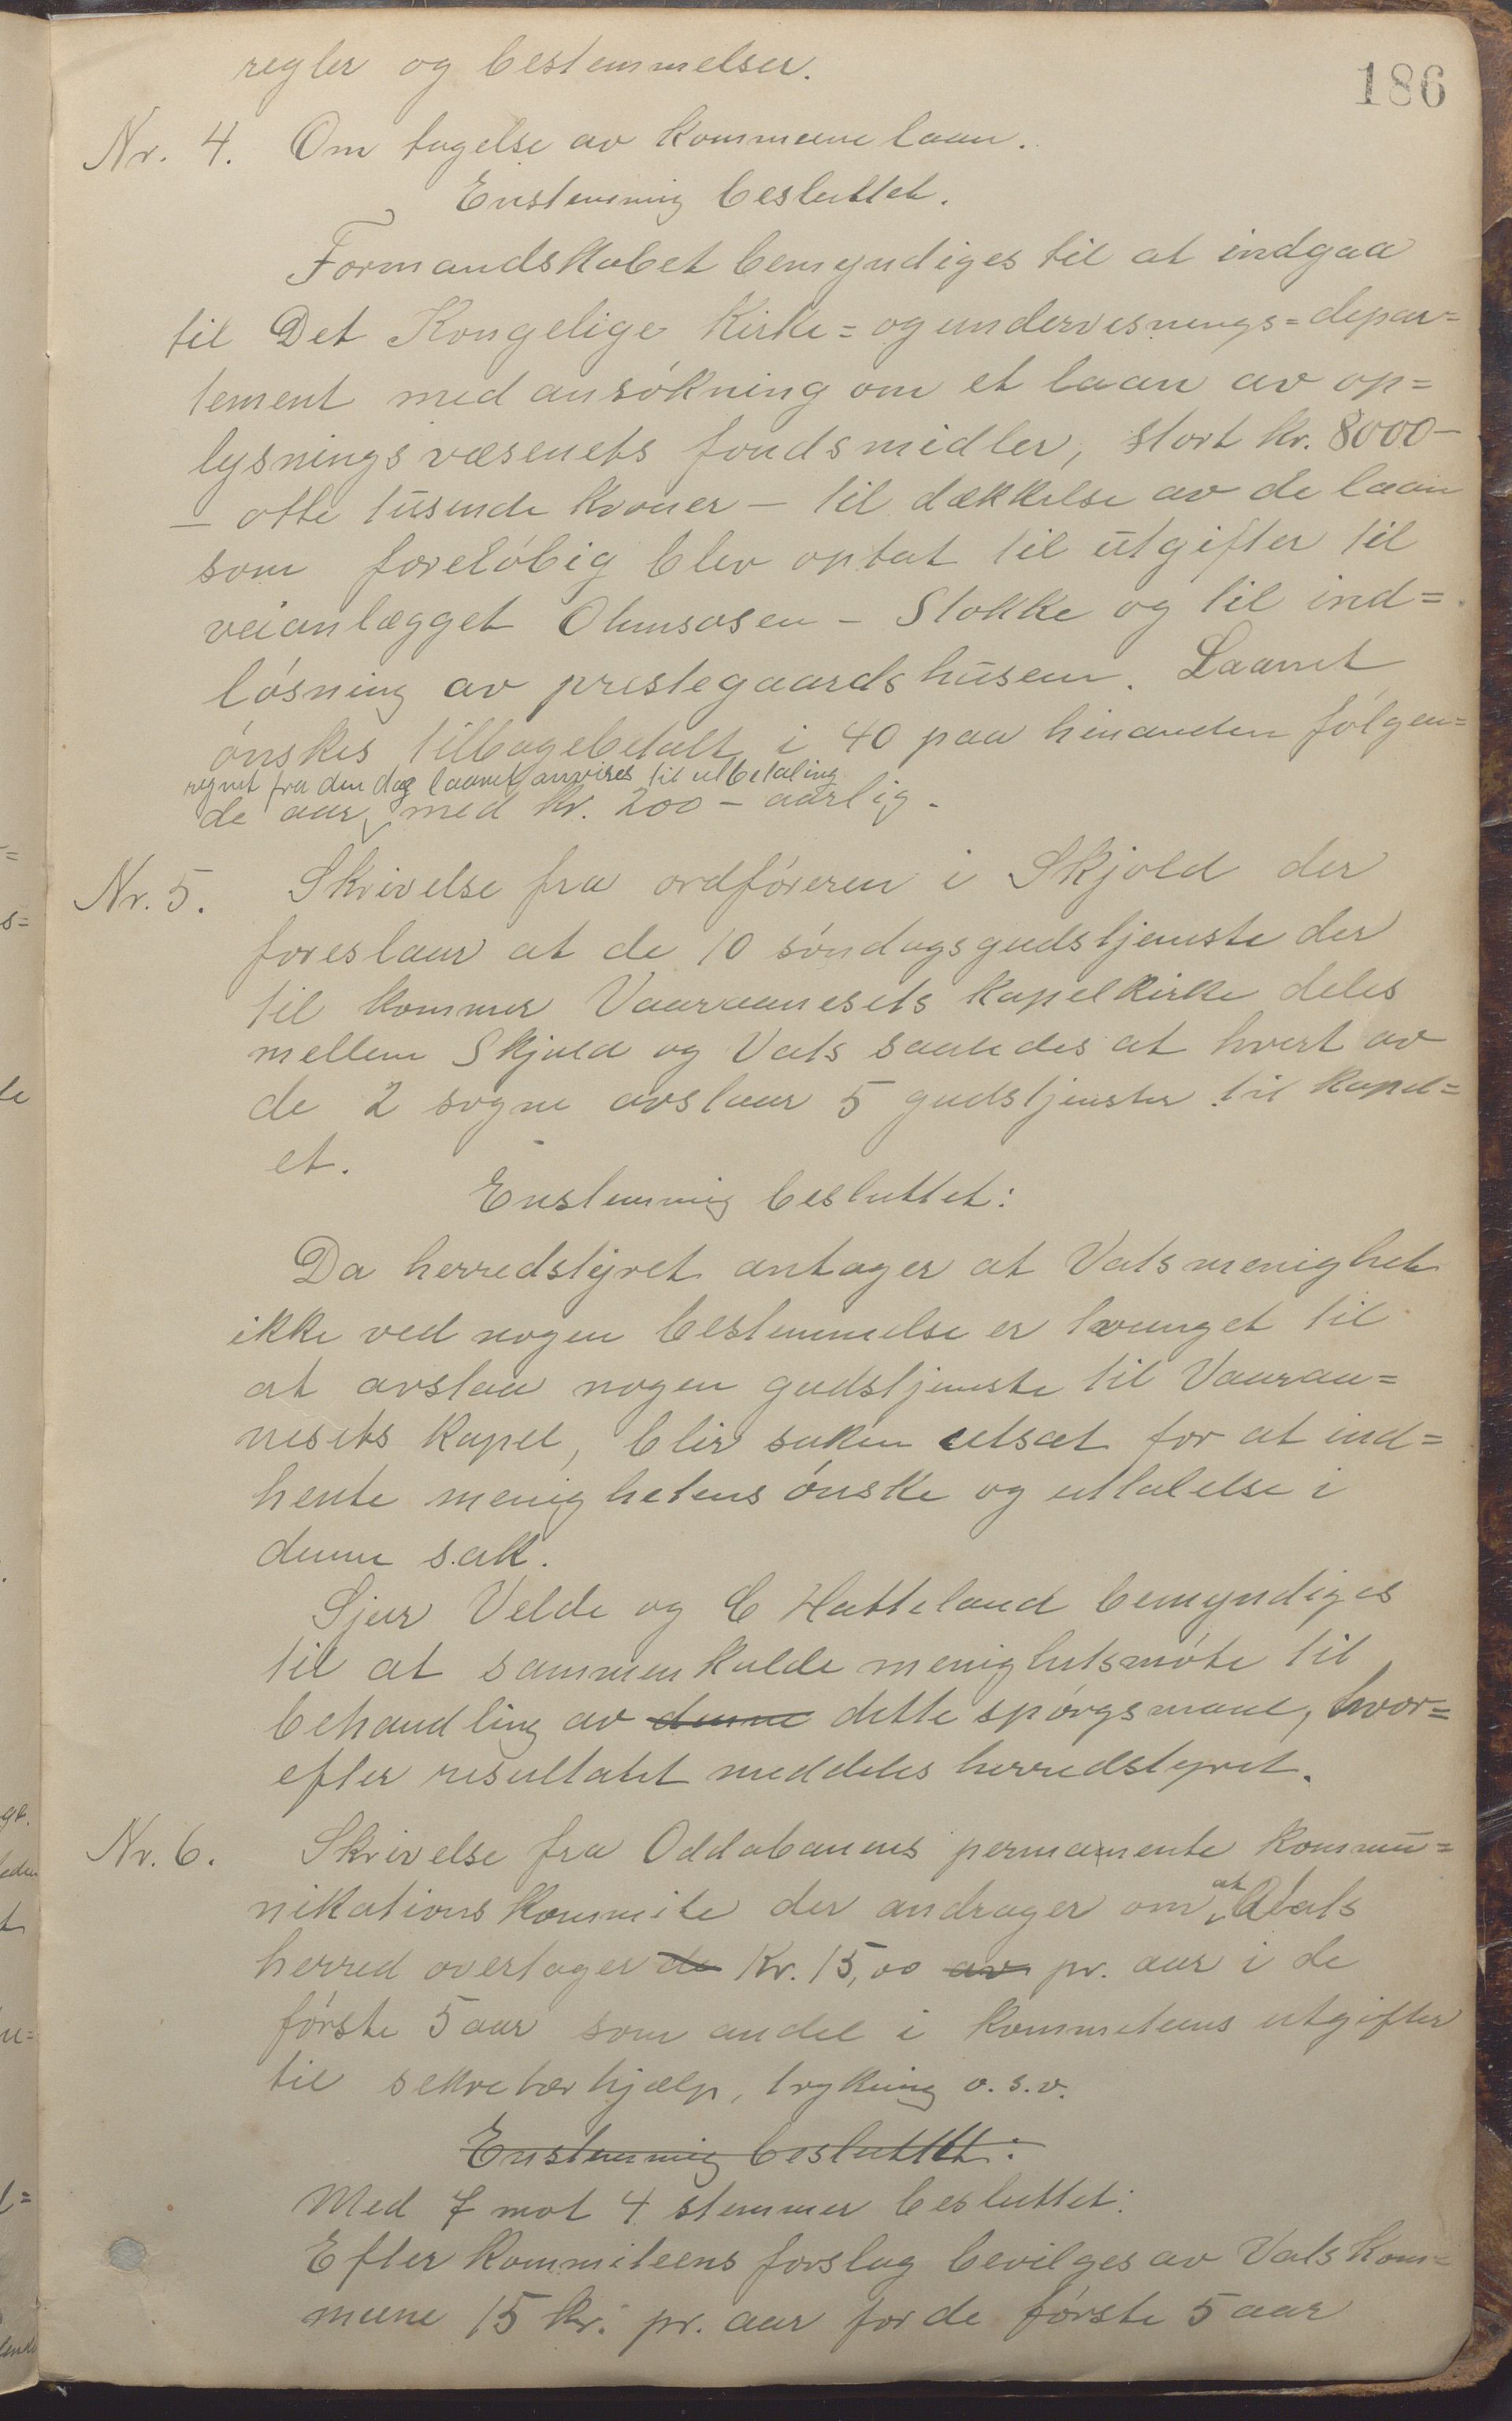 186
regler og bestemmelser.
Nr. 4. Om tagelse av kommunelaan.
Enstemmig besluttet.
Formandskabet bemyndiges til at indgaa
til Det Kongelige Kirke= og undervisnings=depar=
tement med ansökning om et laan av op=
lysningsvæsenets fondsmidler, stort kr. 8000–
– otte tusende kroner – til dækkelse av de laan
som foreløbig blev optat til utgifter til
veianlægget Olunsosen – Stokke og til ind=
løsning av prestegaardshusene. Laanet
ønskes tilbagebetalt i 40 paa hinanden følgen=
regnet fra den dag laanet anvises til utbetaling
de aar, med kr. 200 – aarlig.
Nr. 5. Skrivelse fra ordføreren i Skjold der
foreslaar at de 10 søndagsgudstjenste der
til kommer Vaaraanesets kapelkirke deles
mellem Skjold og Vats saaledes at hvert av
de 2 sogne avslaar 5 gudstjenster til kapel=
et.
Enstemmig besluttet:
Da herredstyret antager at Vats menighet
ikke ved nogen bestemmelse er tvunget til
at avslaa nogen gudstjenste til Vaaraa=
nesets kapel, blir saken utsat for at ind=
hente menighetens ønske og uttalelse i
denne sak.
Sjur Velde og C Hatteland bemyndiges
til at sammenkalde menighetsmøte til
behandling av denne dette spørgsmaal, hvor=
efter resultatet meddeles herredstyret.
Nr. 6. Skrivelse fra Oddabanens permanente kommu=
nikationskommite der andrager om at Vats
herred overtager de Kr. 15,00 av pr. aar i de
første 5 aar som andel i kommiteens utgifter
til sekretærhjælp, trykning o.s.v.
Enstemmig besluttet:
Med 7 mot 4 stemmer besluttet:
Efter kommiteens forslag bevilges av Vats kom=
mune 15 kr. pr. aar for de første 5 aar